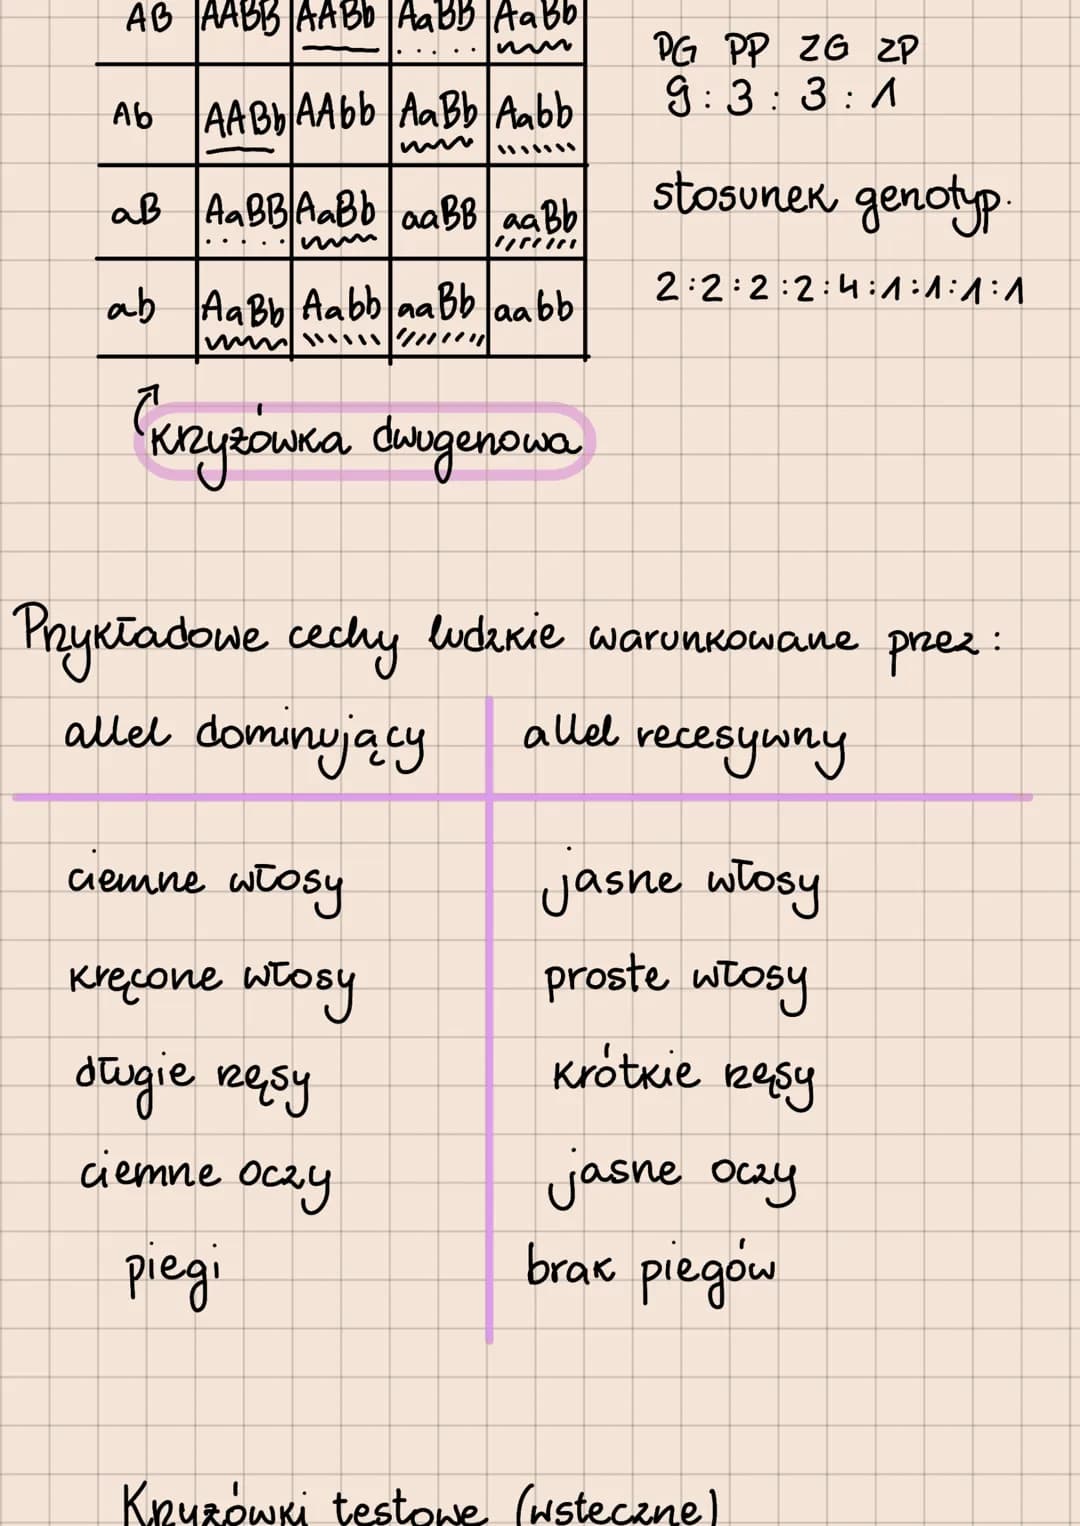 AB AABB AABb AaBB AaBb
Ab AABb AAbb AaBb Aabb
aB AaBB AaBb aaBB aaBb
ab AaBb Aabb aaBb aabb
PG PP ZG ZP
9 : 3 : 3 : 1
stosunek genotyp.
2 : 2 : 2 : 2 : 4 : 1 : 1 : 1 : 1
krzyżówka dwugenowa
Przykładowe cechy ludzkie warunkowane przez :
allel dominujący allel recesywny
ciemne włosy jasne włosy
kręcone włosy proste włosy
długie rzęsy krótkie rzęsy
ciemne oczy jasne oczy
piegi brak piegów
Krzyżówki testowe (wsteczne)